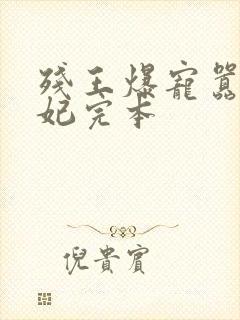 残王爆寵囂
妃完本
倪貴賓